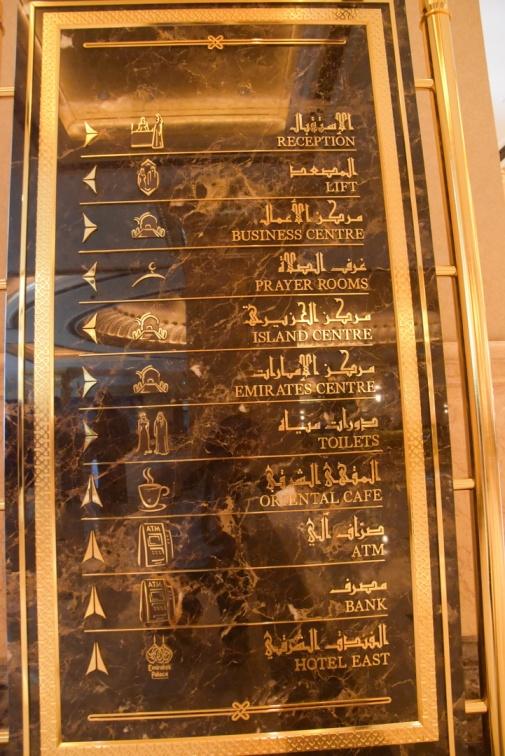 الإستقبال
RECEPTION
المصعد
LIFT
مركز الأعمال
BUSINESS CENTRE
غرف الصلاة
PRAYER ROOMS
مركز الجزيرة
ISLAND CENTRE
مركز الإمارات
EMIRATES CENTRE
دورات مياه
TOILETS
المقهى الشرقي
ORIENTAL CAFE
ATM
صراف آلي
ATM
ATM
مصرف
BANK
Emirates
Palace
الفندق الشرقي
HOTEL EAST